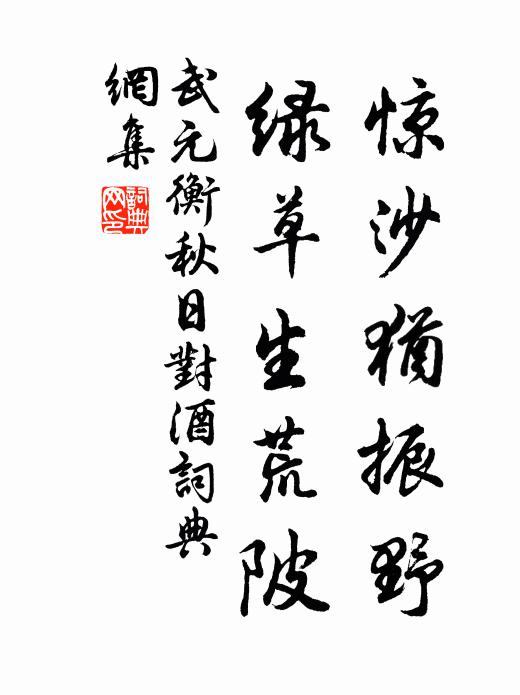 惊沙猶振野
绿草生荒陂
武元衡秋日對酒詞典
網集
詞典网印